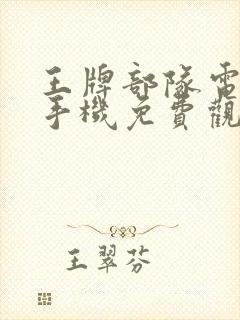 王牌部隊電
手機免費觀
王翠芬